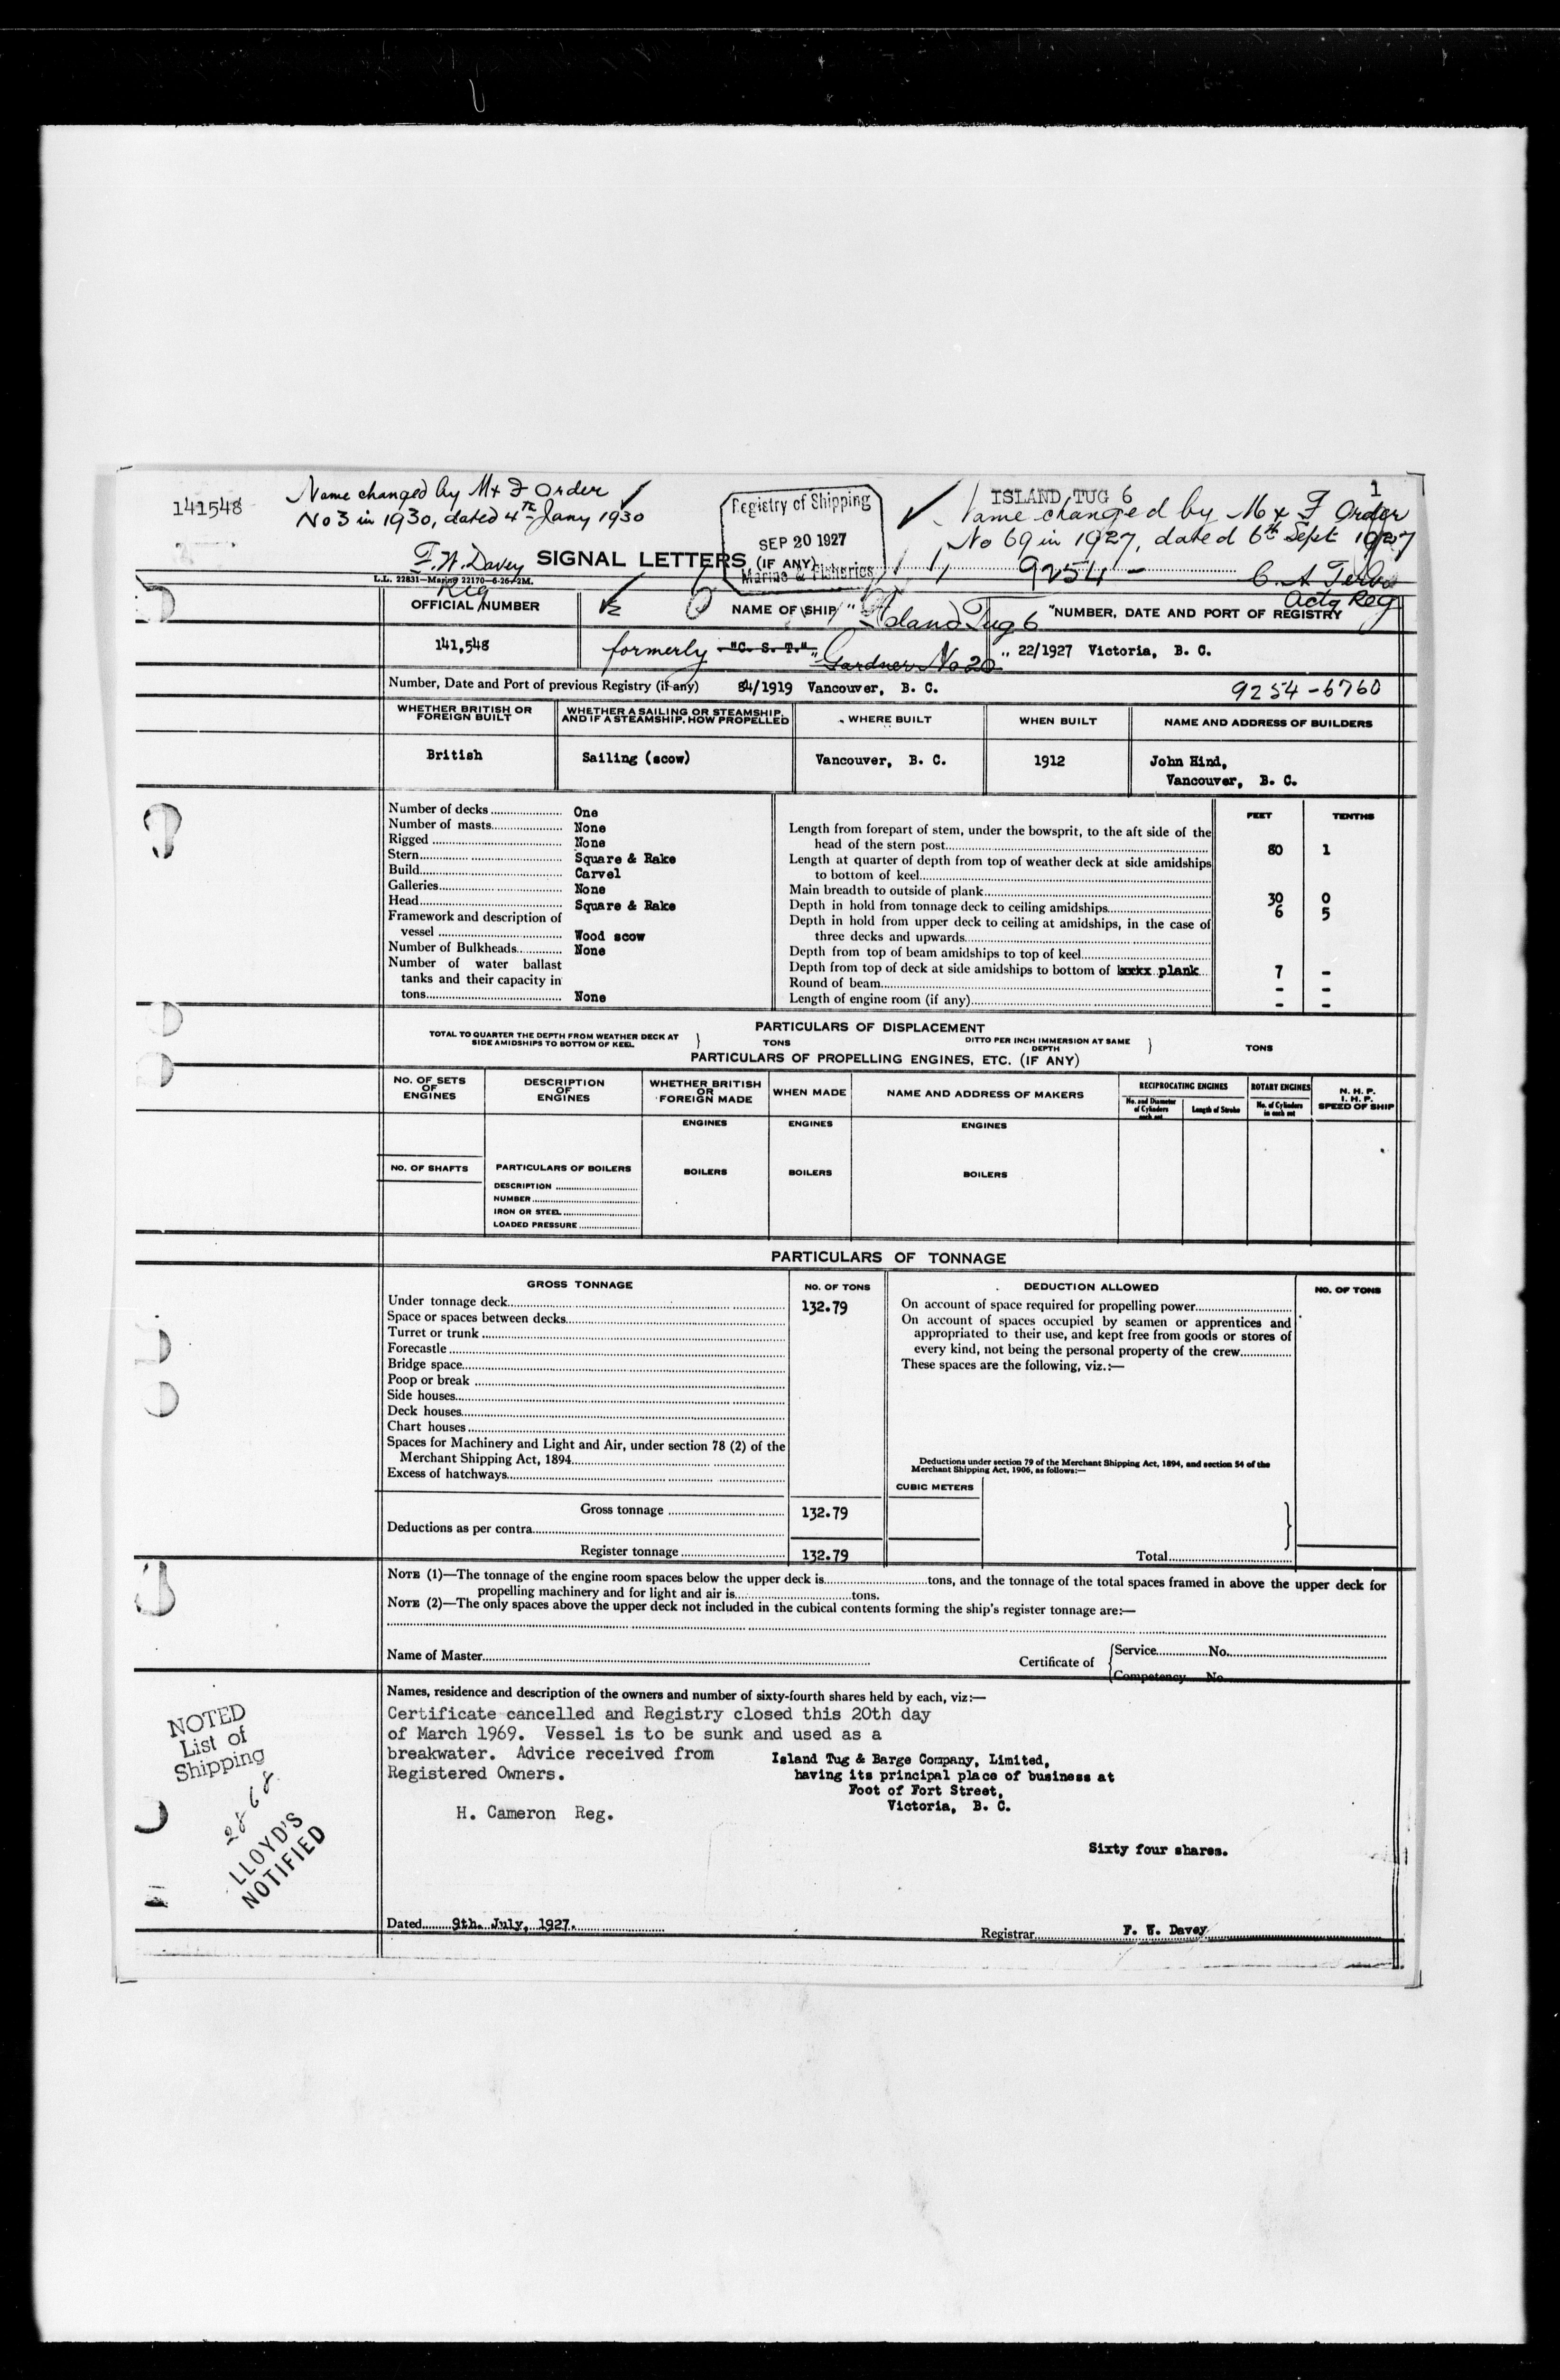 141548
Name changed by M & F Order
No 3 in 1930, dated 4th Jany 1930
F. W. Davey
Reg
Registry of Shipping
SEP 20 1927
Marine & Fisheries
ISLAND TUG 6
1
Name changed by M & F Order
No 69 in 1927, dated 6th Sept 1927
C. A.
Actg Reg
SIGNAL LETTERS (IF ANY)
9254 -
L.L. 22831—Marine 22170—6-26-2M.
OFFICIAL NUMBER
NAME OF SHIP
NUMBER, DATE AND PORT OF REGISTRY
"Island Tug 6"
141,548
formerly "C. S. T." "Gardner No 20"
22/1927 Victoria, B. C.
Number, Date and Port of previous Registry (if any) 84/1919 Vancouver, B. C.
9254-6760
WHETHER BRITISH OR FOREIGN BUILT
WHETHER A SAILING OR STEAMSHIP, AND IF A STEAMSHIP, HOW PROPELLED
WHERE BUILT
WHEN BUILT
NAME AND ADDRESS OF BUILDERS
British
Sailing (scow)
Vancouver, B. C.
1912
John Hind,
Vancouver, B. C.
Number of decks One
Number of masts None
Rigged None
Stern Square & Rake
Build Carvel
Galleries None
Head Square & Rake
Framework and description of
vessel Wood scow
Number of Bulkheads None
Number of water ballast
tanks and their capacity in
tons None
FEET TENTHS
Length from forepart of stem, under the bowsprit, to the aft side of the
head of the stern post 80 1
Length at quarter of depth from top of weather deck at side amidships
to bottom of keel
Main breadth to outside of plank 30 0
Depth in hold from tonnage deck to ceiling amidships 6 5
Depth in hold from upper deck to ceiling at amidships, in the case of
three decks and upwards
Depth from top of beam amidships to top of keel
Depth from top of deck at side amidships to bottom of xxxx plank 7 -
Round of beam - -
Length of engine room (if any) - -
PARTICULARS OF DISPLACEMENT
TOTAL TO QUARTER THE DEPTH FROM WEATHER DECK AT
SIDE AMIDSHIPS TO BOTTOM OF KEEL
TONS
DITTO PER INCH IMMERSION AT SAME
DEPTH
TONS
PARTICULARS OF PROPELLING ENGINES, ETC. (IF ANY)
NO. OF SETS OF ENGINES
DESCRIPTION OF ENGINES
WHETHER BRITISH OR FOREIGN MADE
WHEN MADE
NAME AND ADDRESS OF MAKERS
RECIPROCATING ENGINES
No. and Diameter of Cylinders each set
Length of Stroke
ROTARY ENGINES
No. of Cylinders in each set
N. H. P.
I. H. P.
SPEED OF SHIP
ENGINES
ENGINES
ENGINES
NO. OF SHAFTS
PARTICULARS OF BOILERS
BOILERS
BOILERS
BOILERS
DESCRIPTION
NUMBER
IRON OR STEEL
LOADED PRESSURE
PARTICULARS OF TONNAGE
GROSS TONNAGE
NO. OF TONS
DEDUCTION ALLOWED
NO. OF TONS
Under tonnage deck 132.79
Space or spaces between decks
Turret or trunk
Forecastle
Bridge space
Poop or break
Side houses
Deck houses
Chart houses
Spaces for Machinery and Light and Air, under section 78 (2) of the
Merchant Shipping Act, 1894
Excess of hatchways
Gross tonnage 132.79
Deductions as per contra
Register tonnage 132.79
On account of space required for propelling power
On account of spaces occupied by seamen or apprentices and
appropriated to their use, and kept free from goods or stores of
every kind, not being the personal property of the crew
These spaces are the following, viz.:—
Deductions under section 79 of the Merchant Shipping Act, 1894, and section 54 of the
Merchant Shipping Act, 1906, as follows:—
CUBIC METERS
Total
NOTE (1)—The tonnage of the engine room spaces below the upper deck is tons, and the tonnage of the total spaces framed in above the upper deck for
propelling machinery and for light and air is tons.
NOTE (2)—The only spaces above the upper deck not included in the cubical contents forming the ship's register tonnage are:—
Name of Master
Certificate of
Service No.
Competency No
Names, residence and description of the owners and number of sixty-fourth shares held by each, viz:—
Certificate cancelled and Registry closed this 20th day
of March 1969. Vessel is to be sunk and used as a
breakwater. Advice received from
Registered Owners.
H. Cameron Reg.
Island Tug & Barge Company, Limited,
having its principal place of business at
Foot of Fort Street,
Victoria, B. C.
Sixty four shares.
NOTED
List of
Shipping
2868
LLOYD'S
NOTIFIED
Dated 9th. July, 1927.
Registrar F. W. Davey